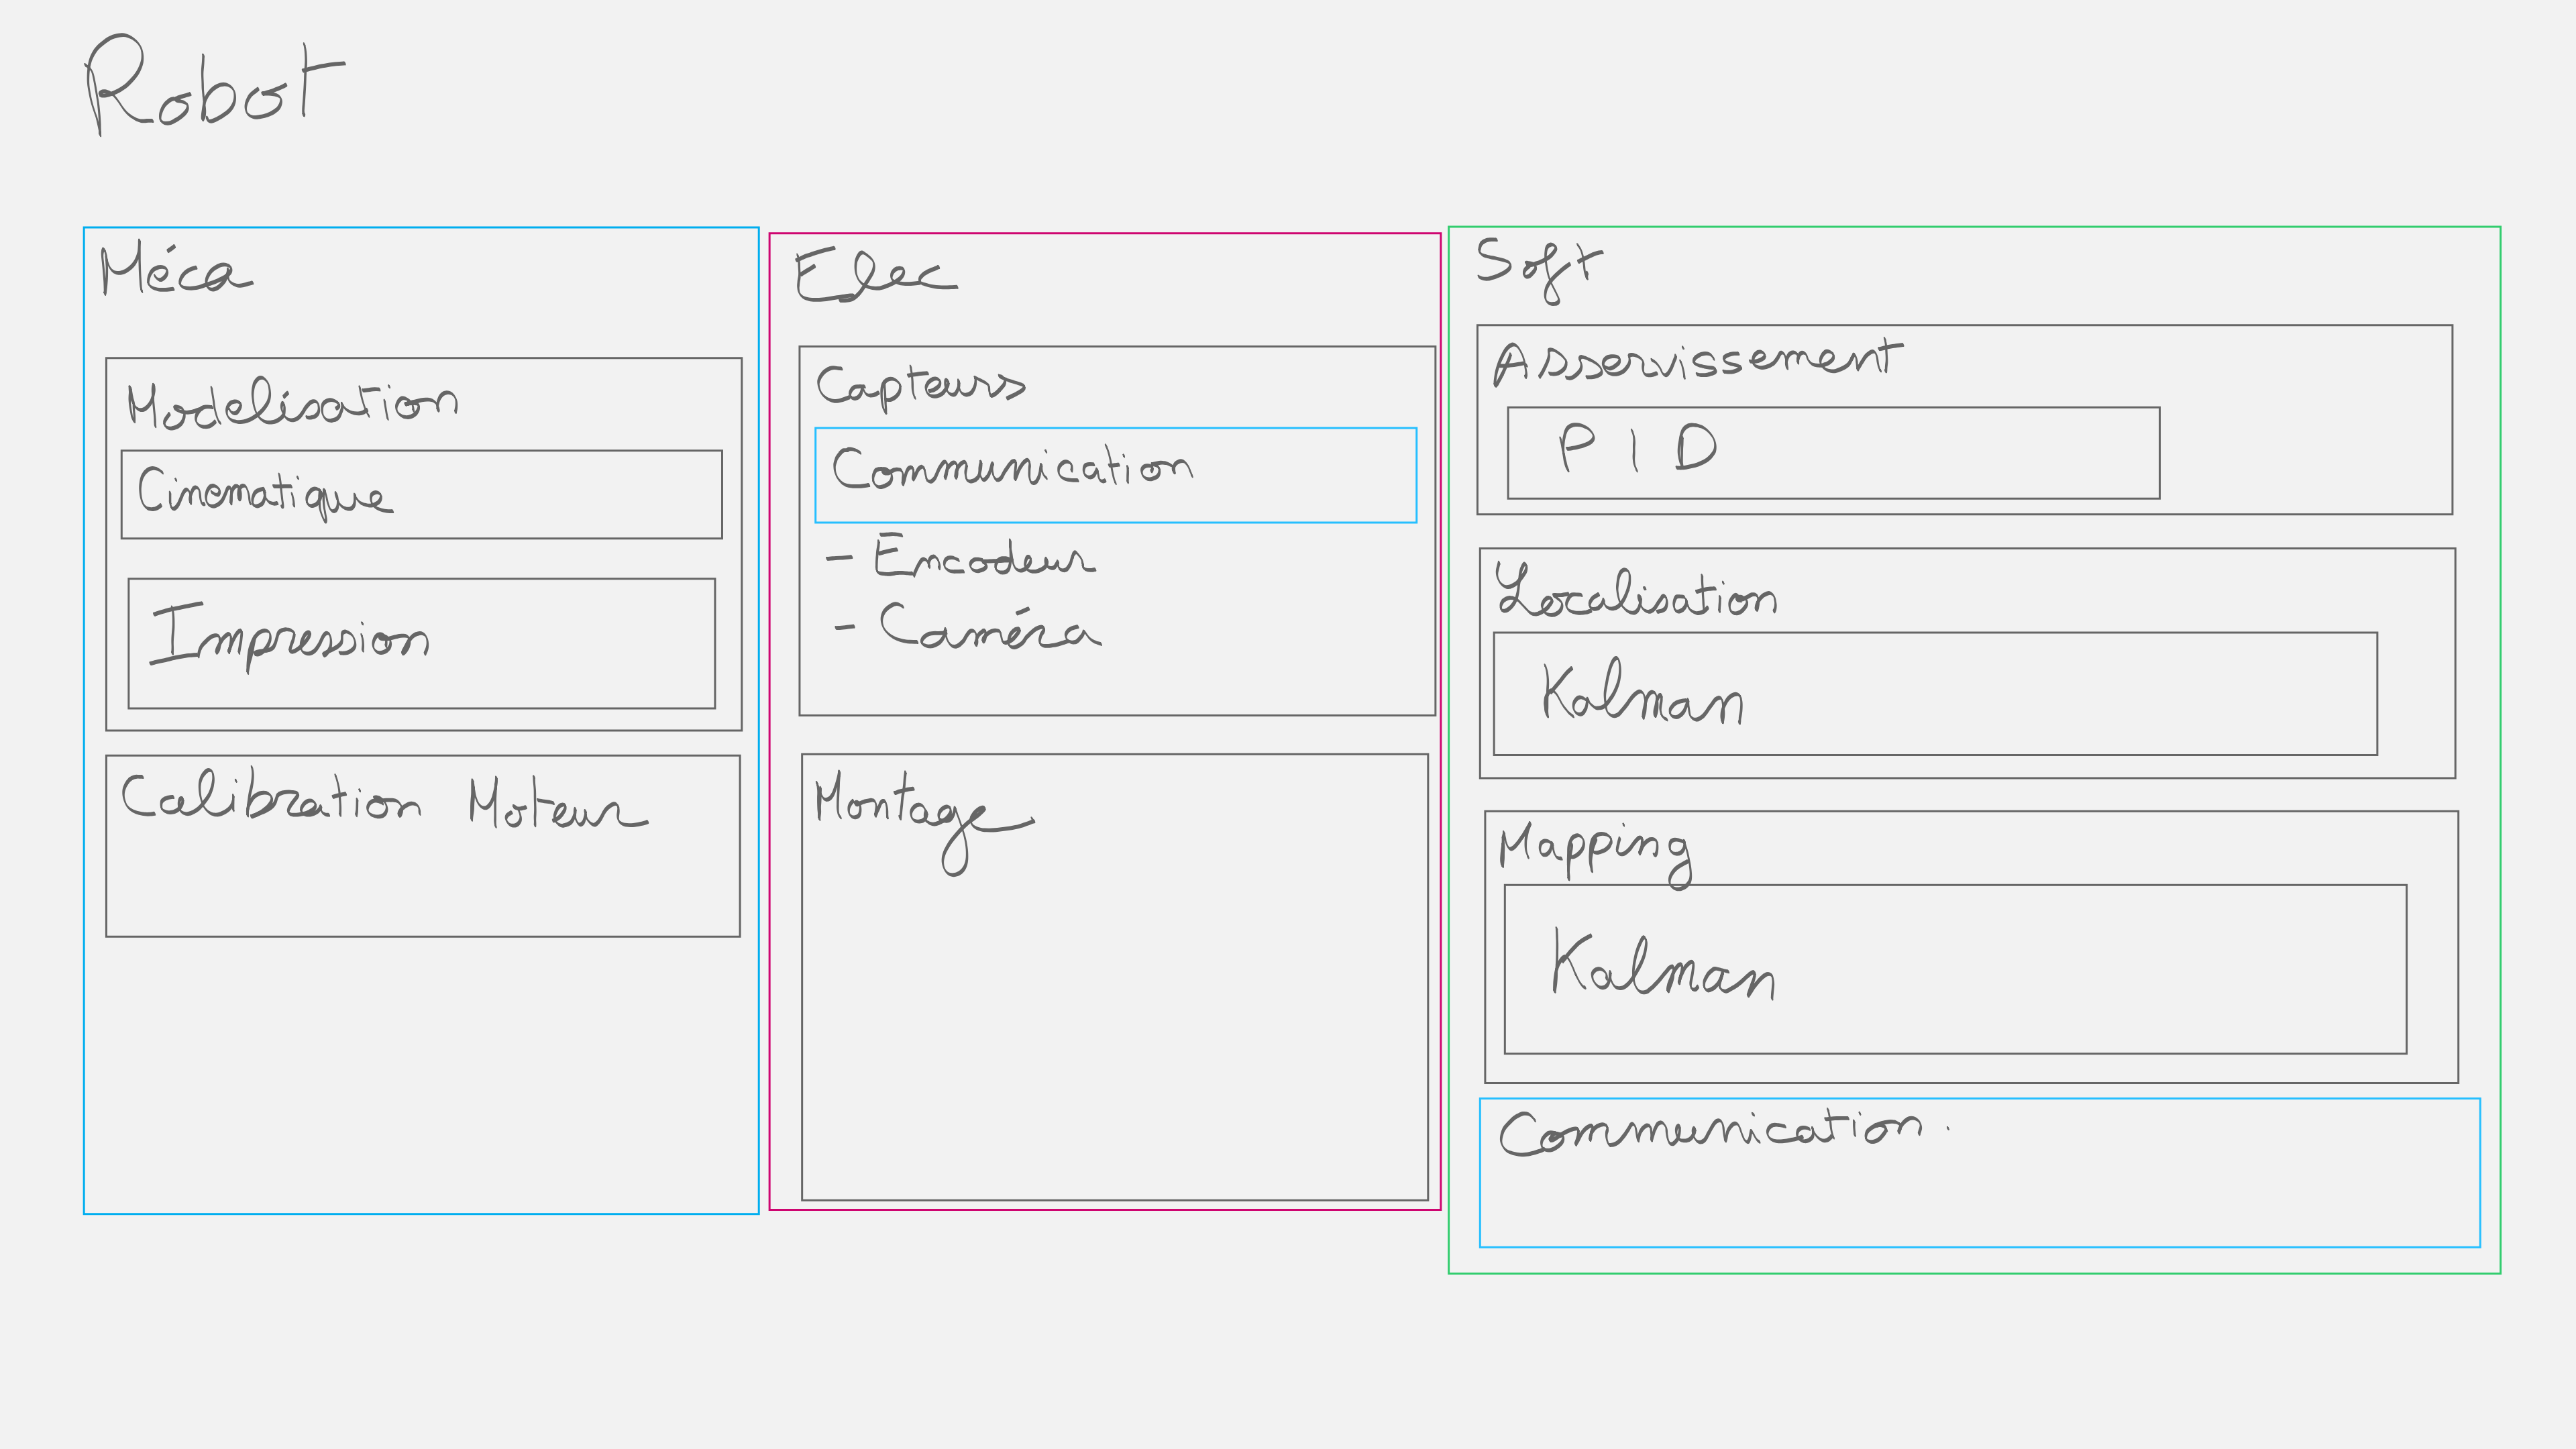 Robot
Méca
Modélisation
Cinematique
Impression
Calibration Moteur
Elec
Capteurs
Communication
- Encodeur
- Caméra
Montage
Soft
Asservissement
PID
Localisation
Kalman
Mapping
Kalman
Communication.